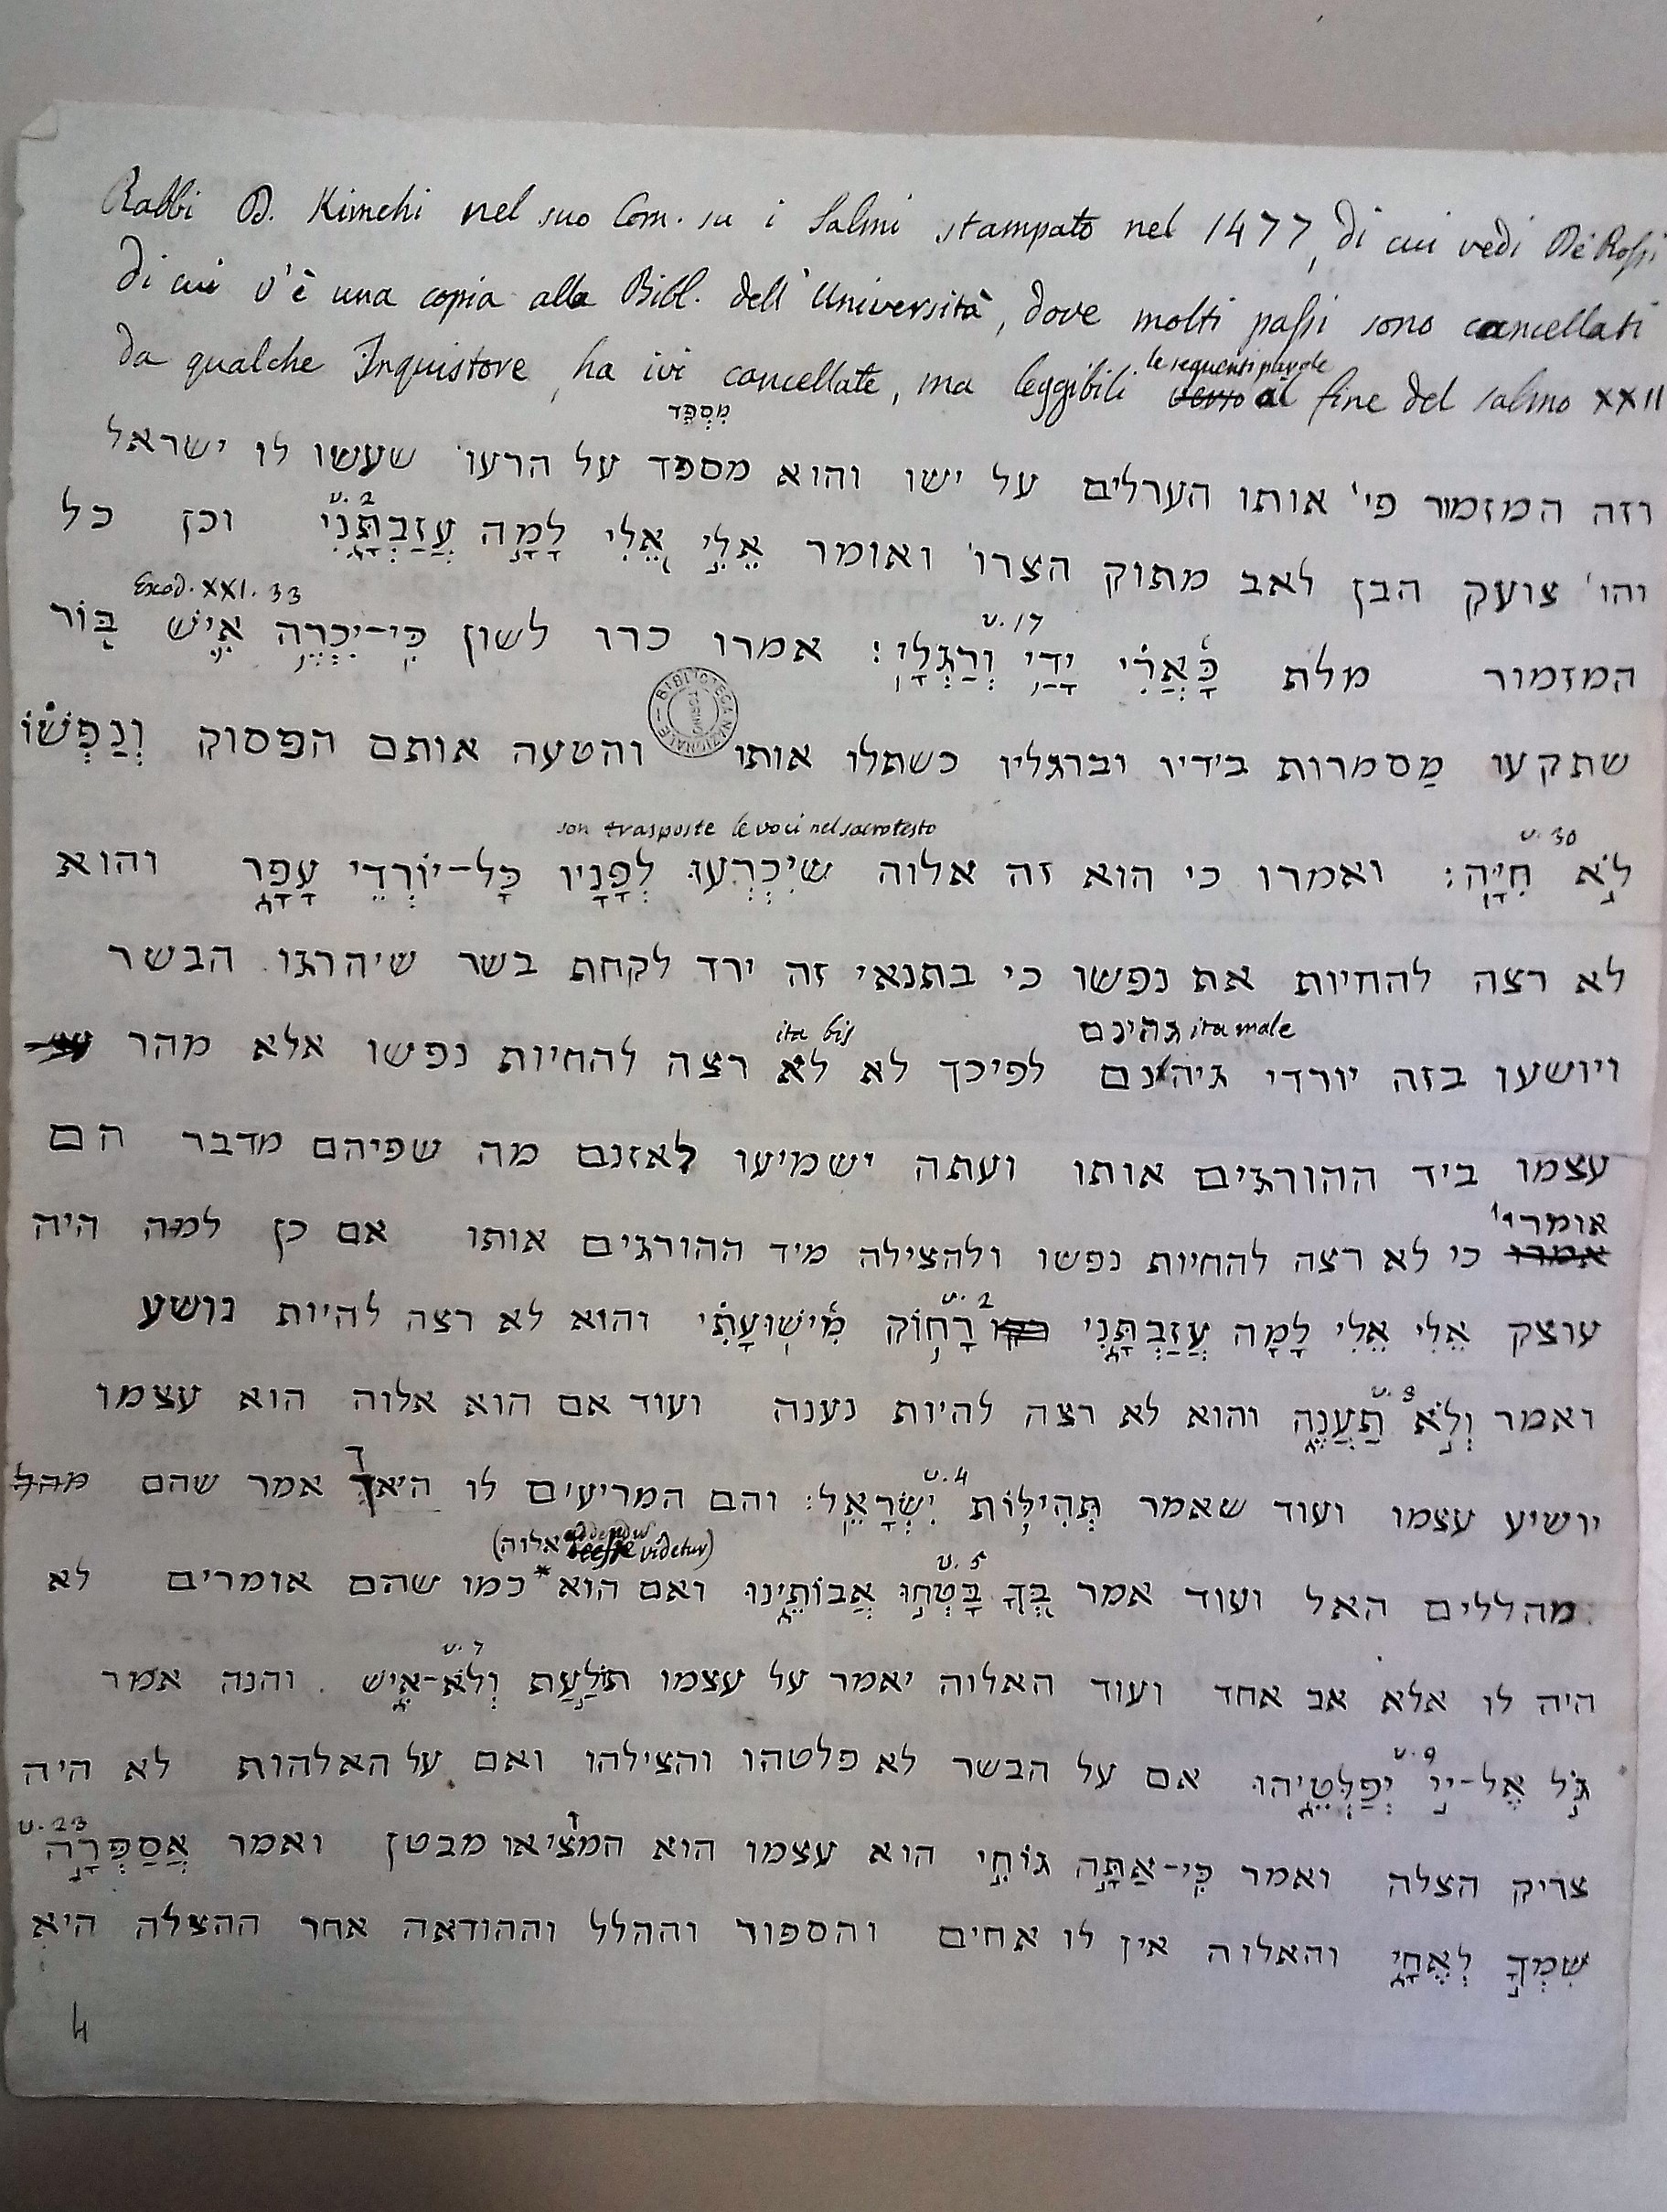 Rabbi D. Kimchi nel suo Com. su i Salmi stampato nel 1477, di cui vedi De Rossi
di cui v'è una copia alla Bibl. dell'Università, dove molti passi sono cancellati
da qualche Inquistore, ha ivi cancellate, ma leggibili le seguenti parole al fine del salmo XXII
מִסְפֵּד
וזה המזמור פי' אותו הערלים על ישו והוא מספד על הרעו' שעשו לו ישראל
v. 2
והו' צועק הבן לאב מתוק הצרו' ואומר אֵלִי אֵלִי לָמָה עֲזַבְתָּנִי וכן כל
Exod. XXI. 33
v. 17
המזמור מלת כָּאֲרִי יָדַי וְרַגְלָי: אמרו כרו לשון כִּי-יִכְרֶה אִישׁ בּוֹר
BIBLIOTECA NAZIONALE TORINO
שתקעו מַסמרות בידיו וברגליו כשתלו אותו והטעה אותם הפסוק וְנַפְשׁוֹ
v. 30 son trasposte le voci nel sacro testo
לֹא חִיָּה: ואמרו כי הוא זה אלוה שיִכְרְעוּ לְפָנָיו כָּל-יוֹרְדֵי עָפָר והוא
לא רצה להחיות את נפשו כי בתנאי זה ירד לקחת בשר שיהרגו הבשר
גהינם ita male
ita bis
ויושעו בזה יורדי גיהנם לפיכך לא לא רצה להחיות נפשו אלא מהר
עצמו ביד ההורגים אותו ועתה ישמיעו לאזנם מה שפיהם מדבר הם
אומרי'
אמרו כי לא רצה להחיות נפשו ולהצילה מיד ההורגים אותו אם כן למה היה
v. 2
עוצק אֵלִי אֵלִי לָמָה עֲזַבְתָּנִי רָחוֹק מִישׁוּעָתִי והוא לא רצה להיות נושע
v. 3
ואמר וְלֹא תַעֲנֶה והוא לא רצה להיות נענה ועוד אם הוא אלוה הוא עצמו
v. 4
יושיע עצמו ועוד שאמר תְּהִילּוֹת יִשְׂרָאֵל: והם המריעים לו היאך אמר שהם מהל
(אלוה addendum videtur)
v. 5
מהללים האל ועוד אמר בְּךָ בָּטְחוּ אֲבוֹתֵינוּ ואם הוא* כמו שהם אומרים לא
v. 7
היה לו אלא אב אחד ועוד האלוה יאמר על עצמו תוֹלַעַת וְלֹא-אִישׁ. והנה אמר
v. 9
גֹּל אֶל-יְיָ יְפַלְּטֵיהוּ אם על הבשר לא פלטהו והצילהו ואם על האלהות לא היה
v. 23
צריק הצלה ואמר כִּי-אַתָּה גוֹחִי הוא עצמו הוא המציאו מבטן ואמר אֲסַפְּרָה
שִׁמְךָ לְאֶחָי והאלוה אין לו אחים והספור וההלל וההודאה אחר ההצלה היא
4